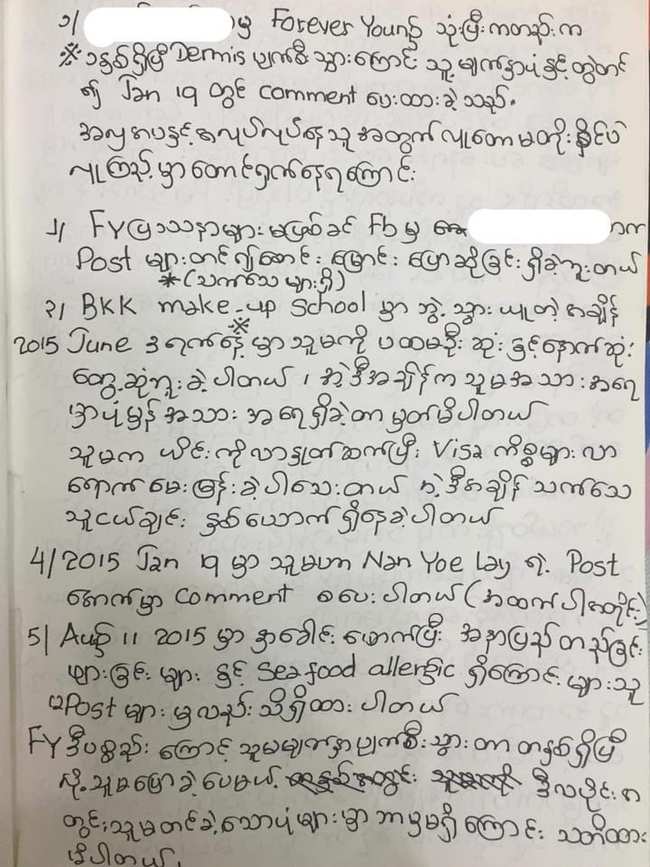 ၁/ မှ Forever Young၌ သုံးပြီးကတည်းက
※ ၁နှစ်ရှိပြီ Dermis ပျက်စီးသွားကြောင်း သူ့မျက်နှာပုံနှင့်တွဲတင်
၍ Jan 19 တွင် comment ပေးထားခဲ့သည်.
အလှအပနှင့်အလုပ်လုပ်နေသူအတွက်လှတောမတိုးနိုင်ပဲ
လူကြည့်မှာတောင်ရှက်နေရကြောင်း
၂/ FYပြဿနာများမဖြစ်ခင် Fb မှ က
Post များတင်၍စောင်းမြောင်းပြောဆိုခြင်းရှိခဲ့ဘူးတယ်
*(သက်သေများရှိ)
၃/ BKK make-up school မှာ ဘွဲ့သွားယူတဲ့အချိန်
※
2015 June ၃ရက်နေ့မှာသူမကို ပထမဦးဆုံးနှင့်နောက်ဆုံး
တွေ့ဆုံဘူးခဲ့ပါတယ်၊ အဲ့ဒီအချိန်ကသူမအသားအရေ
မှာပုံမှန်အသားအရေရှိခဲ့တာမှတ်မိပါတယ်
သူမက ယိုင်းကိုလာနှုတ်ဆက်ပြီး Visa ကိစ္စများလာ
ရောက်မေးမြန်းခဲ့ပါသေးတယ် အဲ့ဒီအချိန်သက်သေ
သူငယ်ချင်းနှစ်ယောက်ရှိနေခဲ့ပါတယ်
4/ 2015 Jan 19 မှာသူမဟာ Nan Yoe Lay ရဲ့ Post
အောက်မှာ comment စပေးပါတယ် (အထက်ပါအတိုင်း)
5/ Aug 11 2015 မှာ နှာခေါင်းဖောက်ပြီး အနာပြည်တည်ခြင်း
များခြင်းများ နှင့် Seafood allergic ရှိကြောင်းများသူ
မPost များမှလည်းသိရှိထားပါတယ်
FY ဒီပစ္စည်းကြောင့်သူမမျက်နှာပျက်စီးသွားတာတနှစ်ရှိပြီ
လို့သူမပြောခဲ့ပေမယ့် ဒီလပိုင်းအ
တွင်းသူမတင်ခဲ့သောပုံများမှာဘာမှမရှိကြောင်းသတိထား
မိပါတယ်၊